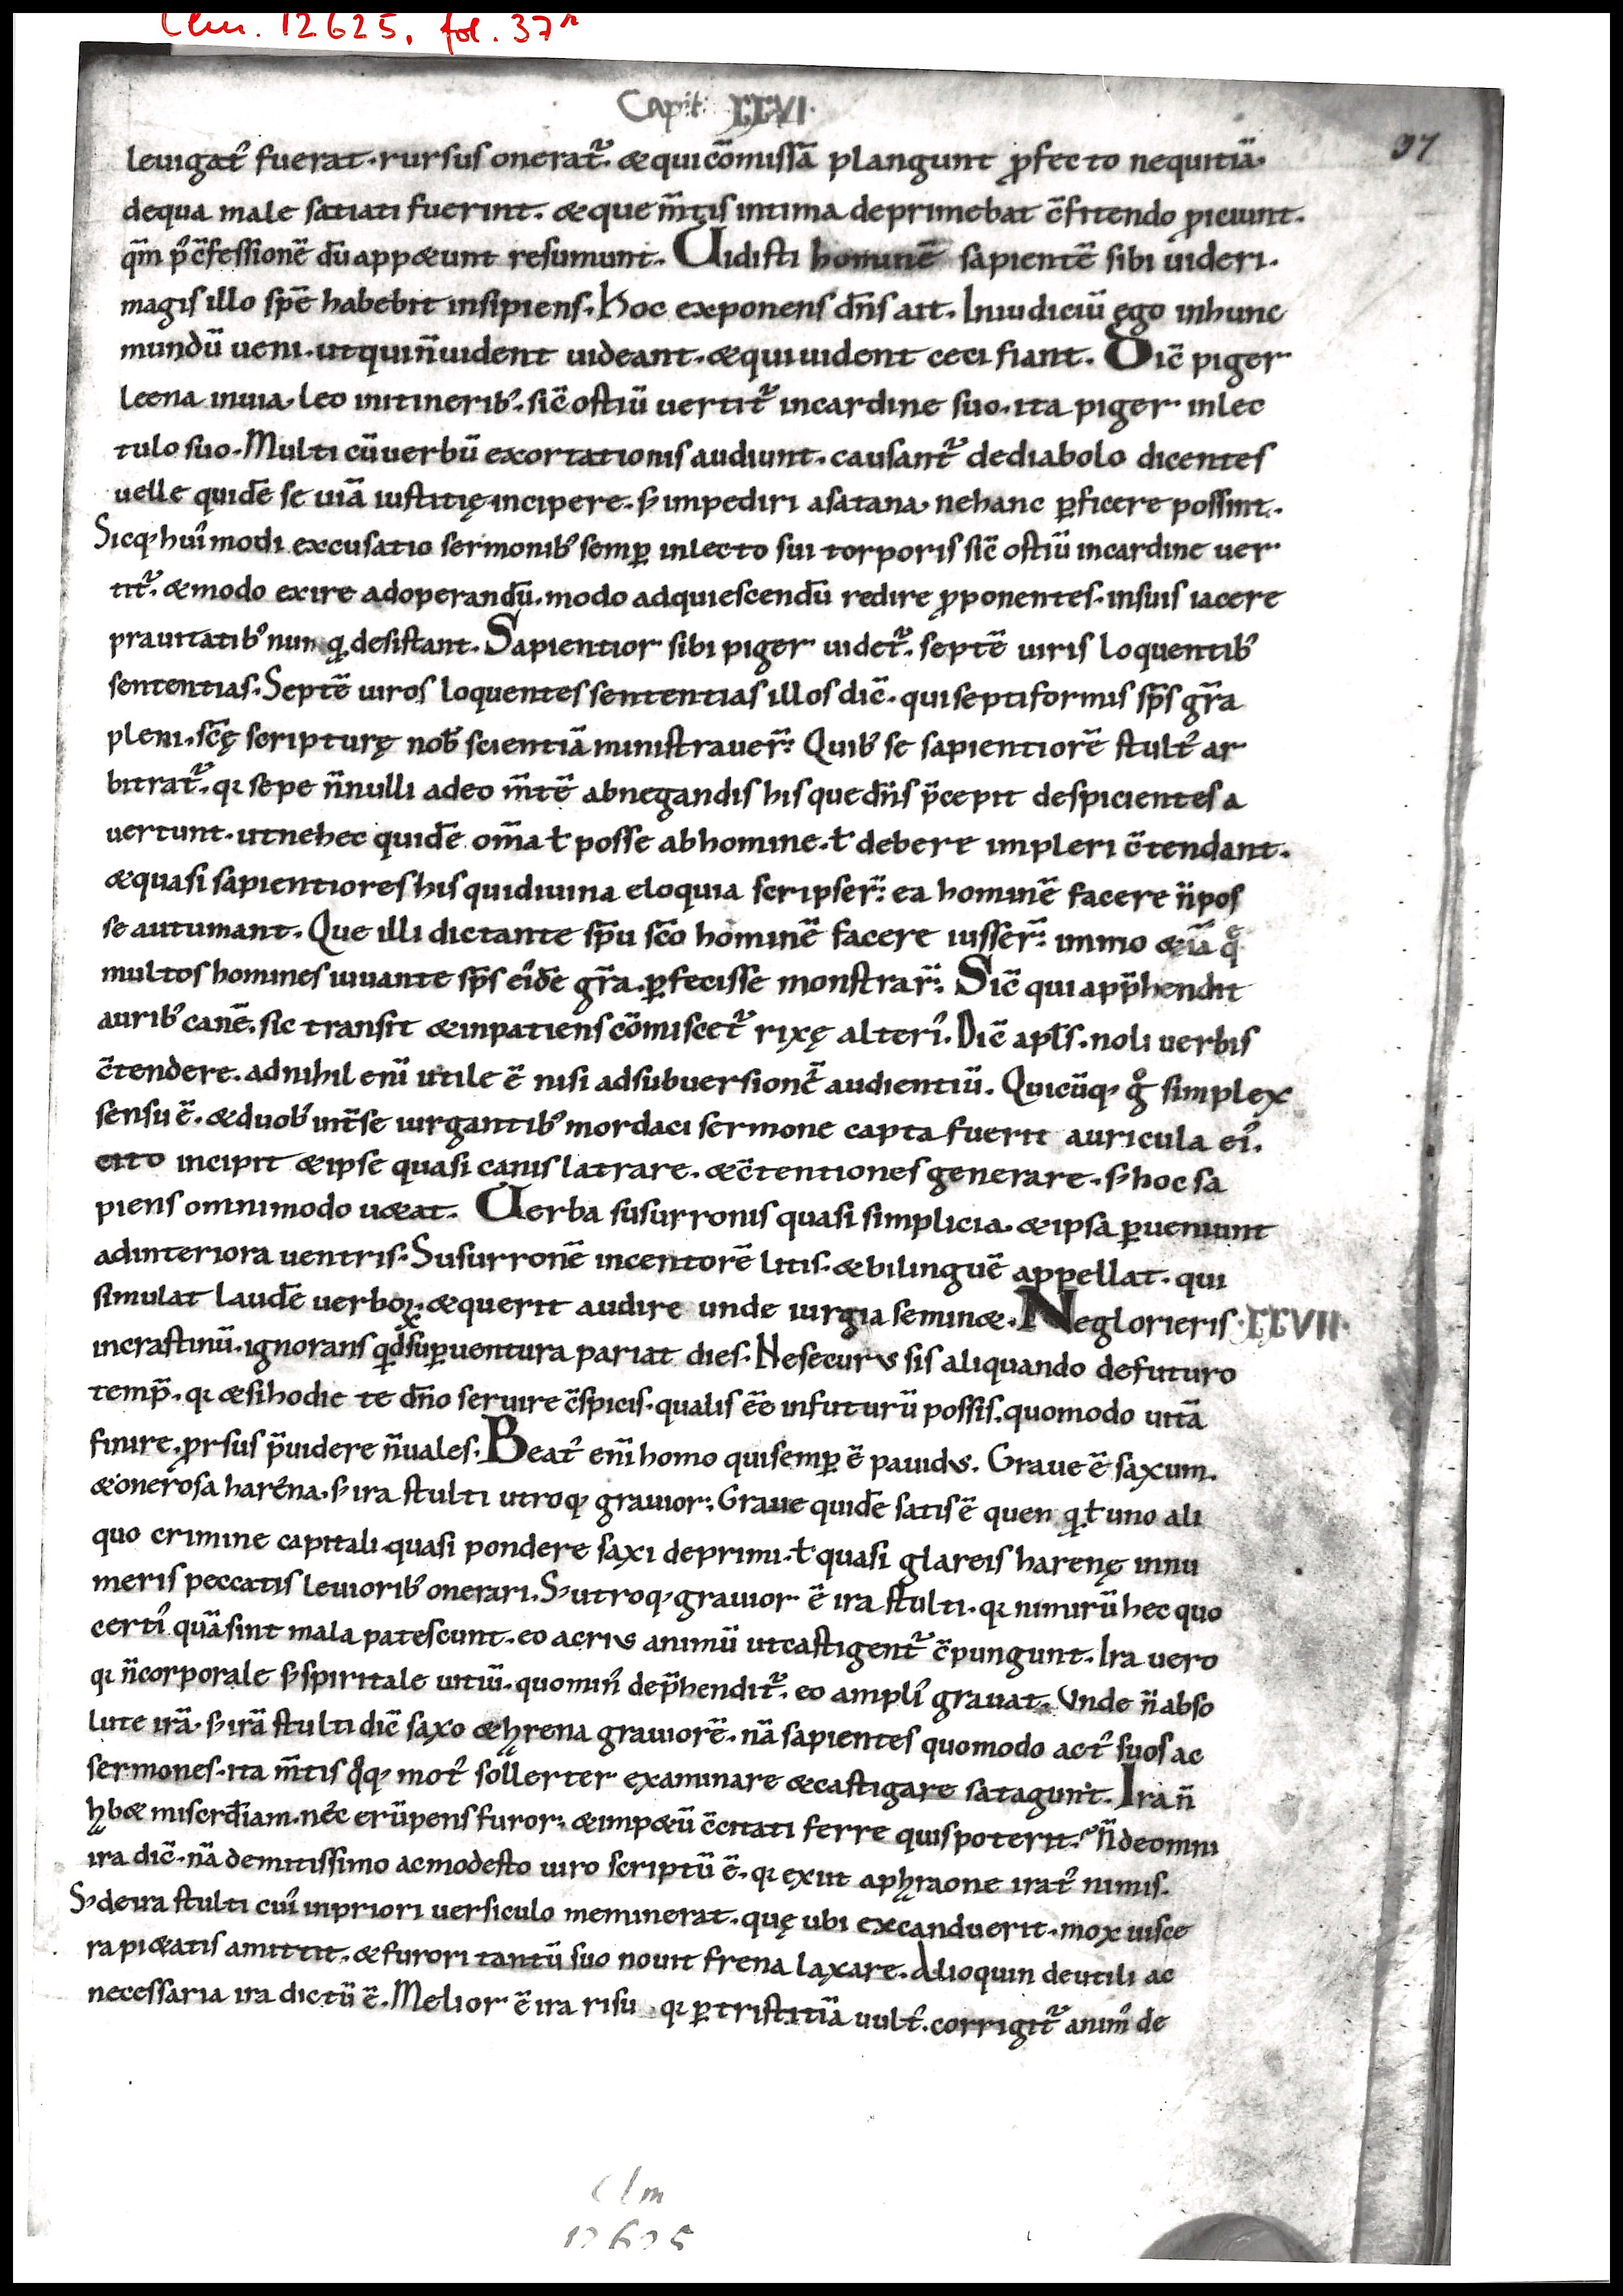 Clm. 12625, fol. 37r
Capit. XXVI.
37
leuigat᾽ fuerat. rursus onerat᷑. &qui cōmissā plangunt ꝓfecto nequitiā.
dequa male satiati fuerint. &que m̄tis intima deprimebat c̄fitendo ꝓiciunt.
qm̄ p᾽ c̄fessionē dū app&unt resumunt. Uidisti hominē sapientē sibi uideri.
magis illo spē habebit insipiens. Hoc exponens dn̄s ait. Iniudiciū ego inhunc
mundū ueni. utquin̄uident uideant. &quiuident ceci fiant. Dic̄ piger
leena inuia. leo initinerib᾽. sic̄ ostiū uertit᷑ incardine suo. ita piger inlec
tulo suo. Multi cūuerbū exortationis audiunt. causant᷑ dediabolo dicentes
uelle quidē se uiā iustitię incipere. s; impediri asatana. nehanc ꝑficere possint.
Sicq; hui᾽modi excusatio sermonib᾽ semꝑ inlecto sui torporis sic̄ ostiū incardine uer
tit᷑. &modo exire adoperandū. modo adquiescendū redire ꝓponentes. insuis iacere
prauitatib᾽ nunꝗ desistant. Sapientior sibi piger uidet᷑. septē uiris loquentib᾽
sententias. Septē uiros loquentes sententias illos dic̄. quiseptiformis sp̄s gr̄a
pleni. sc̄ę scripturę nob᾽ scientiā ministrauer̄. Quib᾽ se sapientiorē stult᾽ ar
bitrat᷑. qꝛ sepe n̄nulli adeo m̄tē abnegandis his quedn̄s p̄cepit despicientes a
uertunt. utnehec quidē om̄a ł posse abhomine. ł debere impleri c̄tendant.
&quasi sapientiores his quidiuina eloquia scripser̄. ea hominē facere n̄pos
se autumant. Que illi dictante sp̄u sc̄o hominē facere iusser̄. immo &iā qͤ
multos homines iuuante sp̄s ei᾽dē gr̄a. ꝑfecisse monstrar̄. Sic̄ qui app̄hendit
aurib᾽ canē. sic transit &inpatiens cōmiscet᷑ rixę alteri᾽. Dic̄ apl̄s. noli uerbis
c̄tendere. adnihil enī utile ē nisi adsubuersionē audientiū. Quicūq; g° simplex
sensu ē. &duob᾽ int̄se iurgantib᾽ mordaci sermone capta fuerit auricula ei᾽.
cito incipit &ipse quasi canis latrare. &c̄tentiones generare. s; hoc sa
piens omnimodo u&at. Uerba susurronis quasi simplicia. &ipsa ꝑueniunt
adinteriora uentris. Susurronē incentorē litis. &bilinguē appellat. qui
simulat laudē uerboꝝ. &querit audire unde iurgia semin&. Neglorieris XXVII.
incrastinū. ignorans qd̄suꝑuentura pariat dies. Nesecurus sis aliquando defuturo
temp̄. qꝛ &sihodie te dn̄o seruire c̄spicis. qualis eē infuturū possis. quomodo uitā
finire. ꝓrsus p̄uidere n̄uales. Beat᾽ enī homo quisemꝑ ē pauidus. Graue ē saxum.
&onerosa harena. s; ira stulti utroq; grauior. Graue quidē satis ē quenꝗ ł uno ali
quo crimine capitali quasi pondere saxi deprimi. ł quasi glareis harenę innu
meris peccatis leuiorib᾽ onerari. S; utroq; grauior ē ira stulti. qꝛ nimirū hec quo
certi᾽ quā sint mala patescunt. eo acrius animū utcastigent᷑ c̄pungunt. Ira uero
qꝛ n̄corporale s; spiritale uitiū. quomin᾽ dep̄hendit᷑. eo ampli᾽ grauat. Vnde n̄abso
lute irā. s; irā stulti dic̄ saxo &hrena grauiorē. nā sapientes quomodo act᾽ suos ac
sermones. ita m̄tis qͦq; mot᾽ sollerter examinare &castigare satagunt. Ira n̄
hb& miscrd̄iam. nec erūpens furor. &imp&ū c̄citati ferre quispoterit. N̄deomni
ira dic̄. nā demitissimo acmodesto uiro scriptū ē. qꝛ exiit aphraone irat᾽ nimis.
S; deira stulti cui᾽ inpriori uersiculo meminerat. quę ubi excanduerit. mox uisce
ra pi&atis amittit. &furori tantū suo nouit frena laxare. Alioquin deutili ac
necessaria ira dictū ē. Melior ē ira risu. qꝛ ꝑ tristitiā uult᾽. corrigit᷑ anim᾽ de
Clm
12625